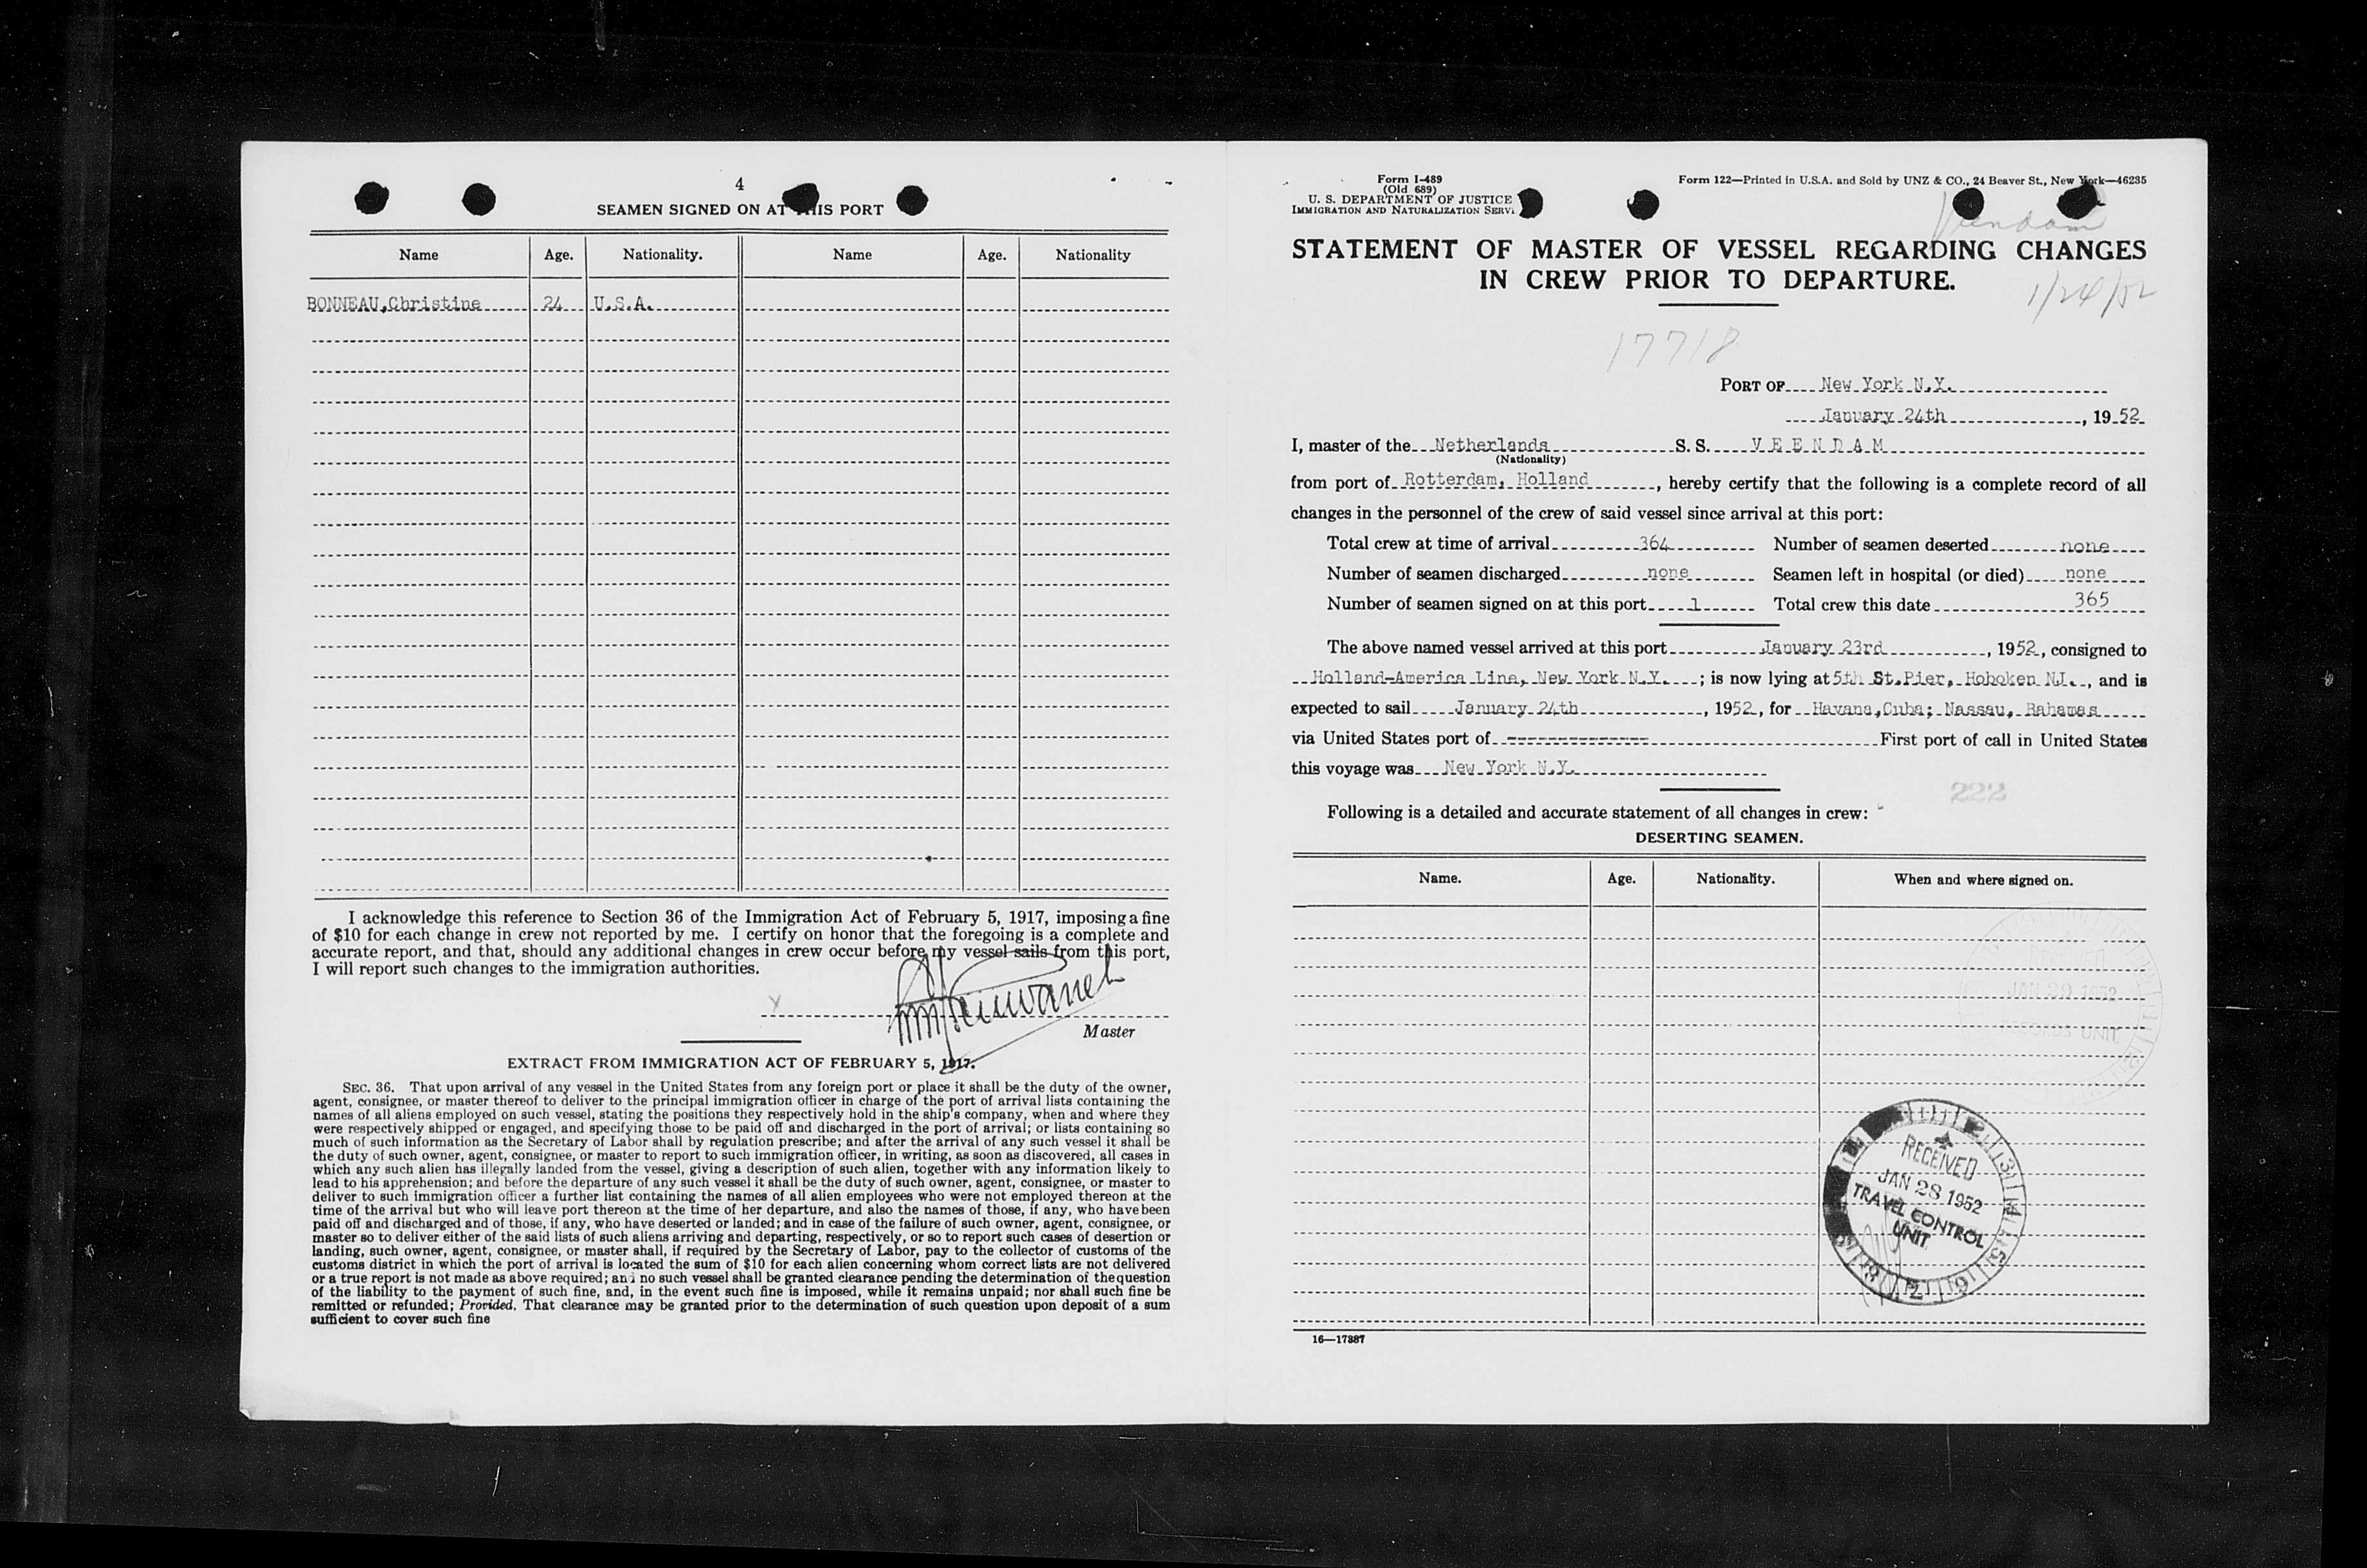 4
SEAMEN SIGNED ON AT THIS PORT
Name Age. Nationality. Name Age. Nationality
BONNEAU,Christine 24 U.S.A.
I acknowledge this reference to Section 36 of the Immigration Act of February 5, 1917, imposing a fine
of $10 for each change in crew not reported by me. I certify on honor that the foregoing is a complete and
accurate report, and that, should any additional changes in crew occur before my vessel sails from this port,
I will report such changes to the immigration authorities.
X
Master
EXTRACT FROM IMMIGRATION ACT OF FEBRUARY 5, 1917.
SEC. 36. That upon arrival of any vessel in the United States from any foreign port or place it shall be the duty of the owner,
agent, consignee, or master thereof to deliver to the principal immigration officer in charge of the port of arrival lists containing the
names of all aliens employed on such vessel, stating the positions they respectively hold in the ship's company, when and where they
were respectively shipped or engaged, and specifying those to be paid off and discharged in the port of arrival; or lists containing so
much of such information as the Secretary of Labor shall by regulation prescribe; and after the arrival of any such vessel it shall be
the duty of such owner, agent, consignee, or master to report to such immigration officer, in writing, as soon as discovered, all cases in
which any such alien has illegally landed from the vessel, giving a description of such alien, together with any information likely to
lead to his apprehension; and before the departure of any such vessel it shall be the duty of such owner, agent, consignee, or master to
deliver to such immigration officer a further list containing the names of all alien employees who were not employed thereon at the
time of the arrival but who will leave port thereon at the time of her departure, and also the names of those, if any, who have been
paid off and discharged and of those, if any, who have deserted or landed; and in case of the failure of such owner, agent, consignee, or
master so to deliver either of the said lists of such aliens arriving and departing, respectively, or so to report such cases of desertion or
landing, such owner, agent, consignee, or master shall, if required by the Secretary of Labor, pay to the collector of customs of the
customs district in which the port of arrival is located the sum of $10 for each alien concerning whom correct lists are not delivered
or a true report is not made as above required; and no such vessel shall be granted clearance pending the determination of the question
of the liability to the payment of such fine, and, in the event such fine is imposed, while it remains unpaid; nor shall such fine be
remitted or refunded; Provided, That clearance may be granted prior to the determination of such question upon deposit of a sum
sufficient to cover such fine
Form I-489
(Old 689)
U. S. DEPARTMENT OF JUSTICE
IMMIGRATION AND NATURALIZATION SERVI
Form 122—Printed in U.S.A. and Sold by UNZ & CO., 24 Beaver St., New York—46235
Veendam
STATEMENT OF MASTER OF VESSEL REGARDING CHANGES
IN CREW PRIOR TO DEPARTURE.
1/24/52
17718
PORT OF New York N.Y.
January 24th, 1952
I, master of the Netherlands S. S. V E E N D A M
(Nationality)
from port of Rotterdam, Holland, hereby certify that the following is a complete record of all
changes in the personnel of the crew of said vessel since arrival at this port:
Total crew at time of arrival 364 Number of seamen deserted none
Number of seamen discharged none Seamen left in hospital (or died) none
Number of seamen signed on at this port 1 Total crew this date 365
The above named vessel arrived at this port January 23rd, 1952, consigned to
Holland-America Line, New York N.Y.; is now lying at 5th St.Pier, Hoboken NJ., and is
expected to sail January 24th, 1952, for Havana,Cuba; Nassau, Bahamas
via United States port of ============== First port of call in United States
this voyage was New York N.Y.
222
Following is a detailed and accurate statement of all changes in crew:
DESERTING SEAMEN.
Name. Age. Nationality. When and where signed on.
RECEIVED
JAN 1952
RECORDS UNIT
RECEIVED
JAN 28 1952
TRAVEL CONTROL
UNIT
16—17887